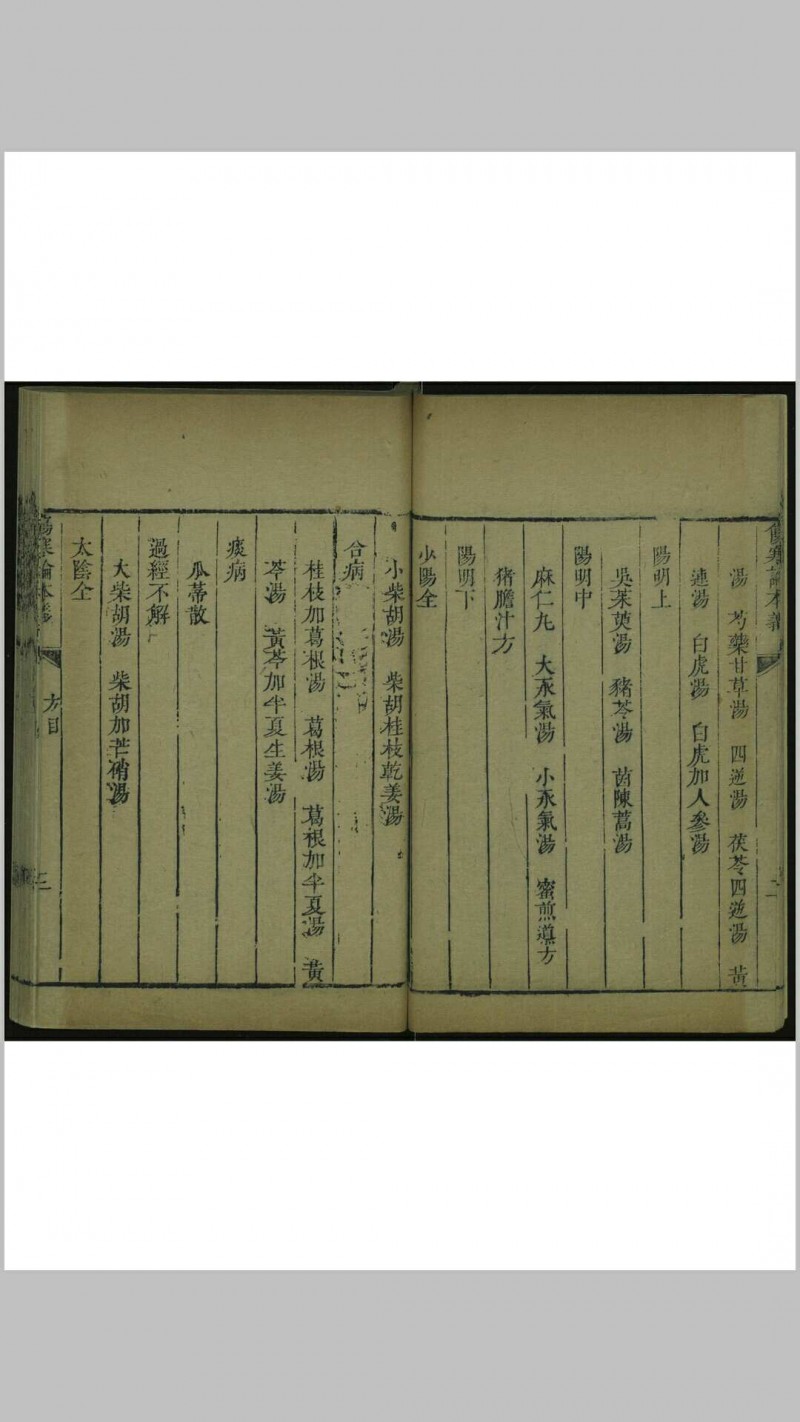 傷寒論本義
湯　芍藥甘草湯　四逆湯　茯苓四逆湯　黃
連湯　白虎湯　白虎加人參湯
陽明上
吳茱萸湯　豬苓湯　茵陳蒿湯
陽明中
麻仁丸　大承氣湯　小承氣湯　蜜煎導方
猪膽汁方
陽明下
少陽全
小柴胡湯　柴胡桂枝乾姜湯
合病
桂枝加葛根湯　葛根湯　葛根加半夏湯　黃
芩湯　黃芩加半夏生姜湯
痰病
瓜蒂散
過經不解
大柴胡湯　柴胡加芒硝湯
太陰全
傷寒論本義
方目
三